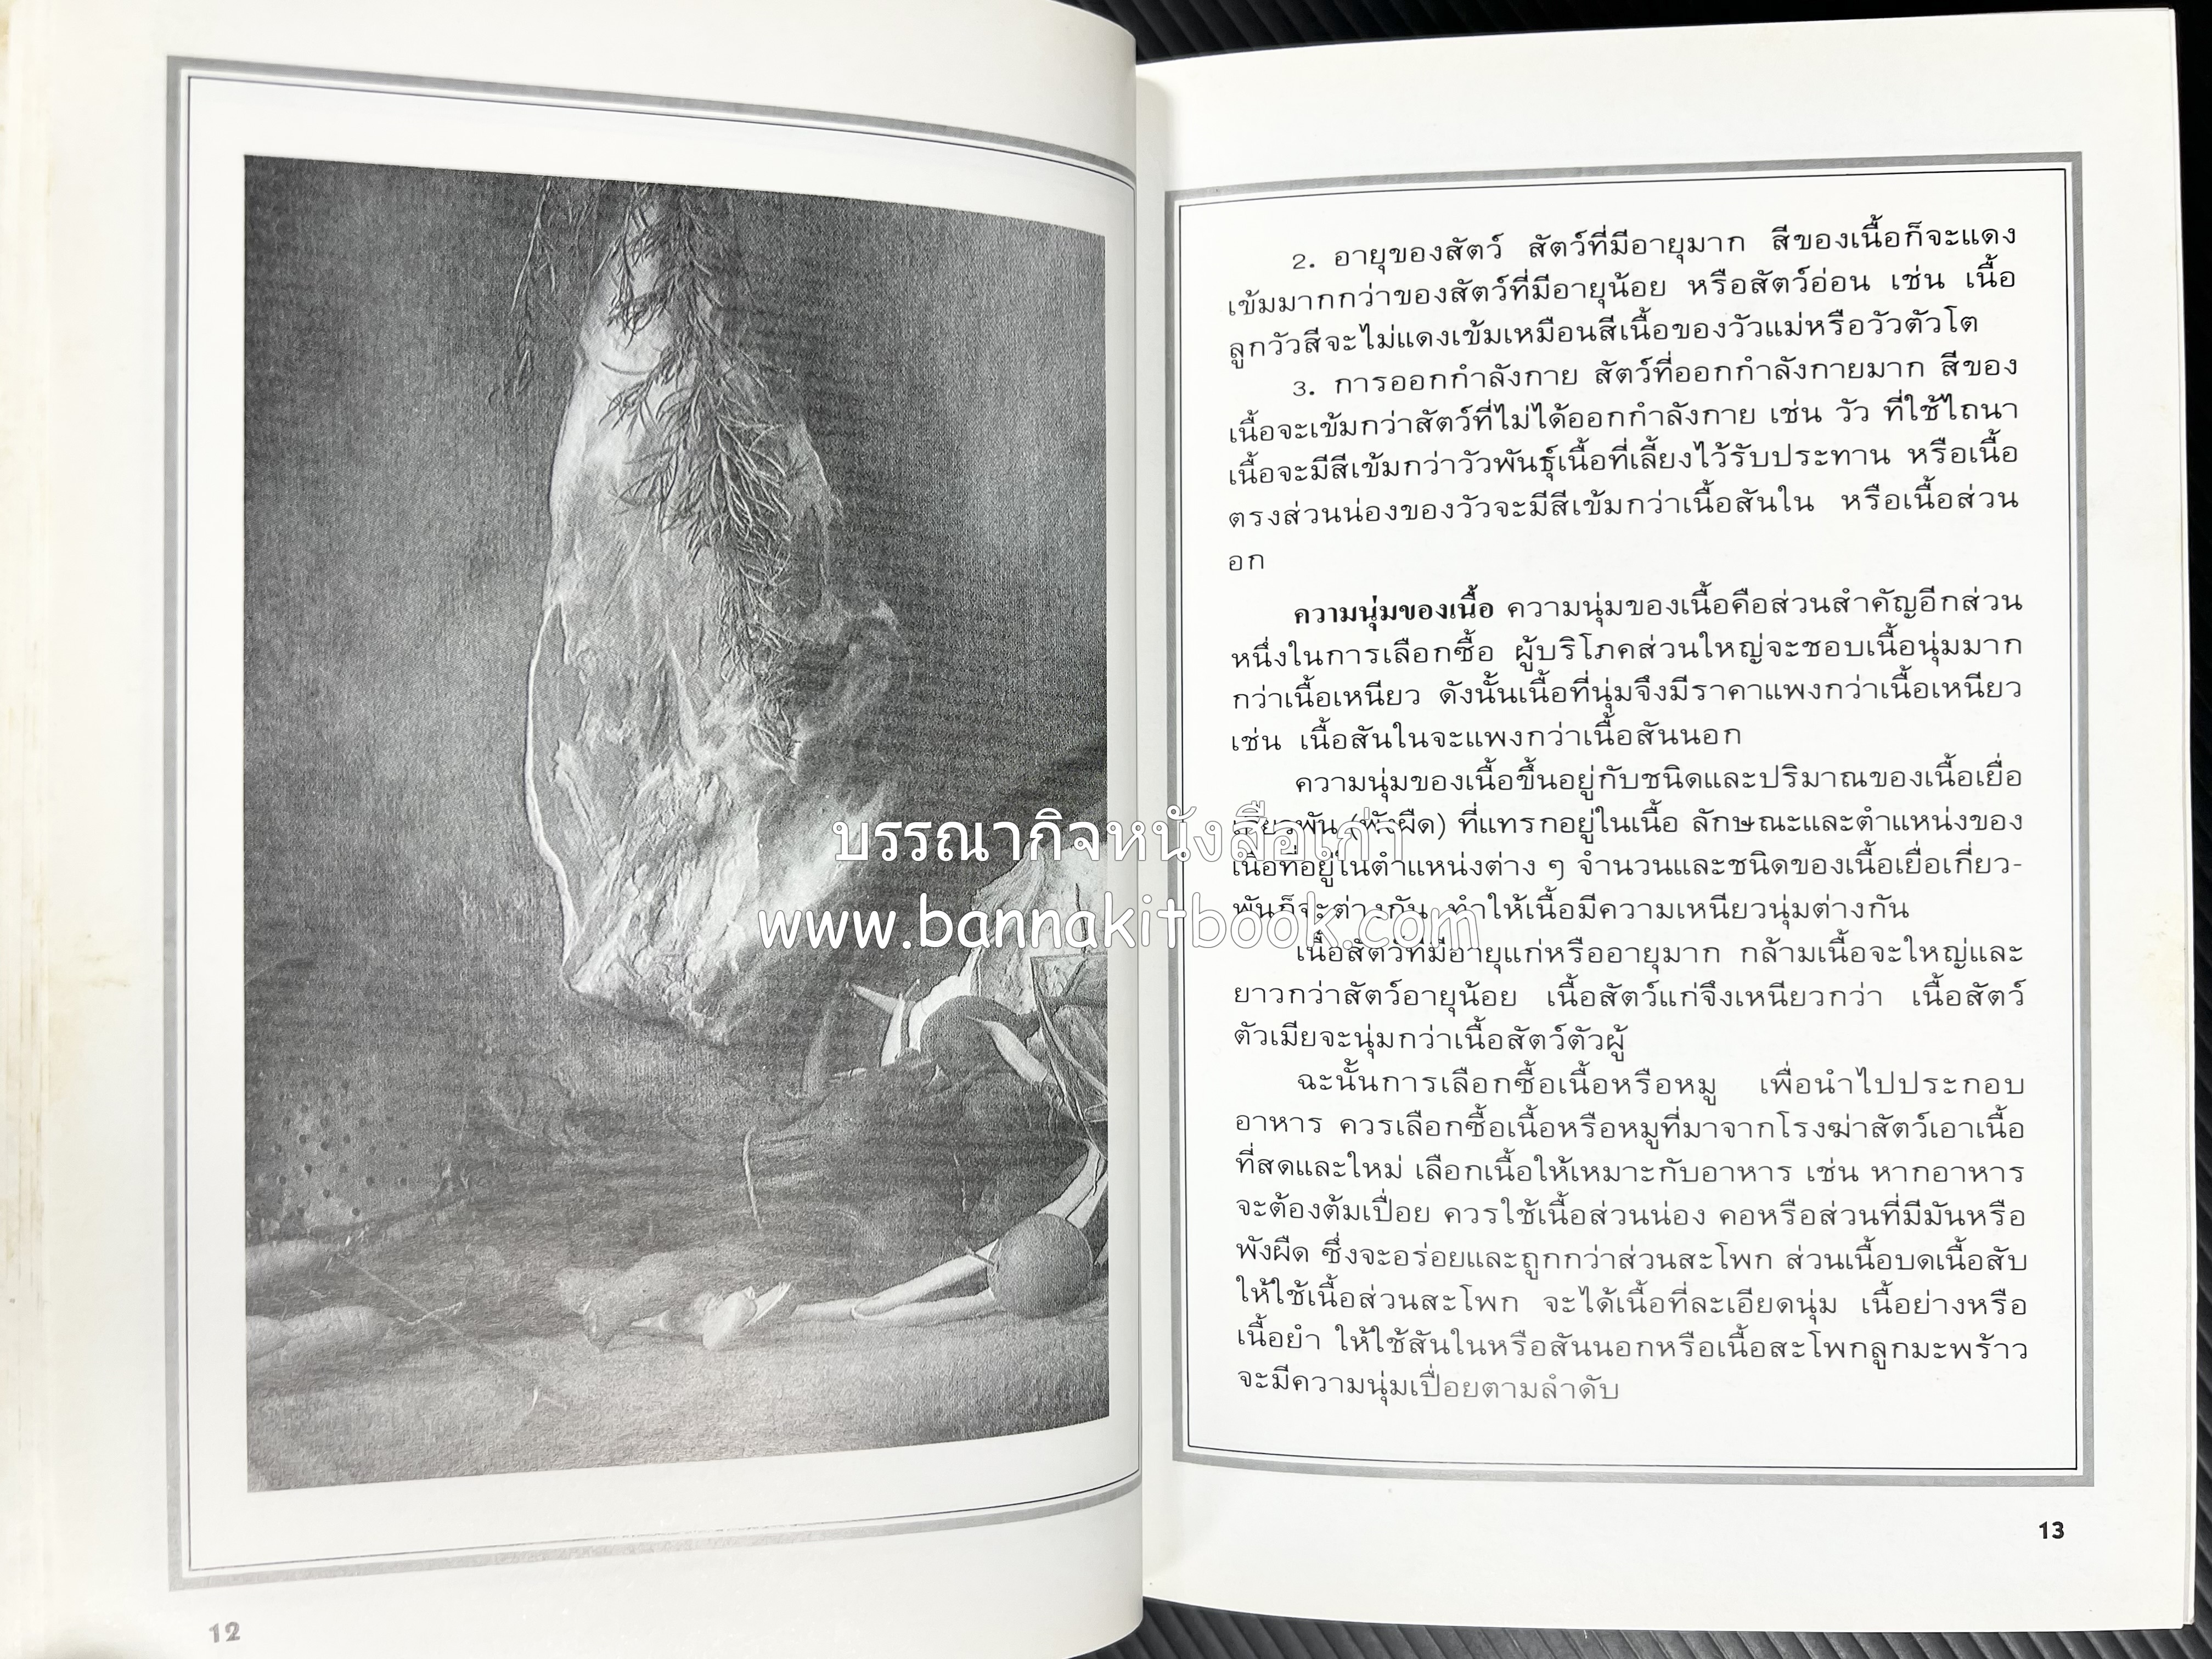 12
2. อายุของสัตว์ สัตว์ที่มีอายุมาก สีของเนื้อก็จะแดง
เข้มมากกว่าของสัตว์ที่มีอายุน้อย หรือสัตว์อ่อน เช่น เนื้อ
ลูกวัวสีจะไม่แดงเข้มเหมือนสีเนื้อของวัวแม่หรือวัวตัวโต
3. การออกกำลังกาย สัตว์ที่ออกกำลังกายมาก สีของ
เนื้อจะเข้มกว่าสัตว์ที่ไม่ได้ออกกำลังกาย เช่น วัว ที่ใช้ไถนา
เนื้อจะมีสีเข้มกว่าวัวพันธุ์เนื้อที่เลี้ยงไว้รับประทาน หรือเนื้อ
ตรงส่วนน่องของวัวจะมีสีเข้มกว่าเนื้อสันใน หรือเนื้อส่วน
อก
ความนุ่มของเนื้อ ความนุ่มของเนื้อคือส่วนสำคัญอีกส่วน
หนึ่งในการเลือกซื้อ ผู้บริโภคส่วนใหญ่จะชอบเนื้อนุ่มมาก
กว่าเนื้อเหนียว ดังนั้นเนื้อที่นุ่มจึงมีราคาแพงกว่าเนื้อเหนียว
เช่น เนื้อสันในจะแพงกว่าเนื้อสันนอก
ความนุ่มของเนื้อขึ้นอยู่กับชนิดและปริมาณของเนื้อเยื่อ
เกี่ยวพัน (พังผืด) ที่แทรกอยู่ในเนื้อ ลักษณะและตำแหน่งของ
เนื้อที่อยู่ในตำแหน่งต่าง ๆ จำนวนและชนิดของเนื้อเยื่อเกี่ยว-
พันก็จะต่างกัน ทำให้เนื้อมีความเหนียวนุ่มต่างกัน
เนื้อสัตว์ที่มีอายุแก่หรืออายุมาก กล้ามเนื้อจะใหญ่และ
ยาวกว่าสัตว์อายุน้อย เนื้อสัตว์แก่จึงเหนียวกว่า เนื้อสัตว์
ตัวเมียจะนุ่มกว่าเนื้อสัตว์ตัวผู้
ฉะนั้นการเลือกซื้อเนื้อหรือหมู เพื่อนำไปประกอบ
อาหาร ควรเลือกซื้อเนื้อหรือหมูที่มาจากโรงฆ่าสัตว์เอาเนื้อ
ที่สดและใหม่ เลือกเนื้อให้เหมาะกับอาหาร เช่น หากอาหาร
จะต้องต้มเปื่อย ควรใช้เนื้อส่วนน่อง คอหรือส่วนที่มีมันหรือ
พังผืด ซึ่งจะอร่อยและถูกกว่าส่วนสะโพก ส่วนเนื้อบดเนื้อสับ
ให้ใช้เนื้อส่วนสะโพก จะได้เนื้อที่ละเอียดนุ่ม เนื้อย่างหรือ
เนื้อยำ ให้ใช้สันในหรือสันนอกหรือเนื้อสะโพกลูกมะพร้าว
จะมีความนุ่มเปื่อยตามลำดับ
13
บรรณากิจหนังสือเก่า
www.bannakitbook.com